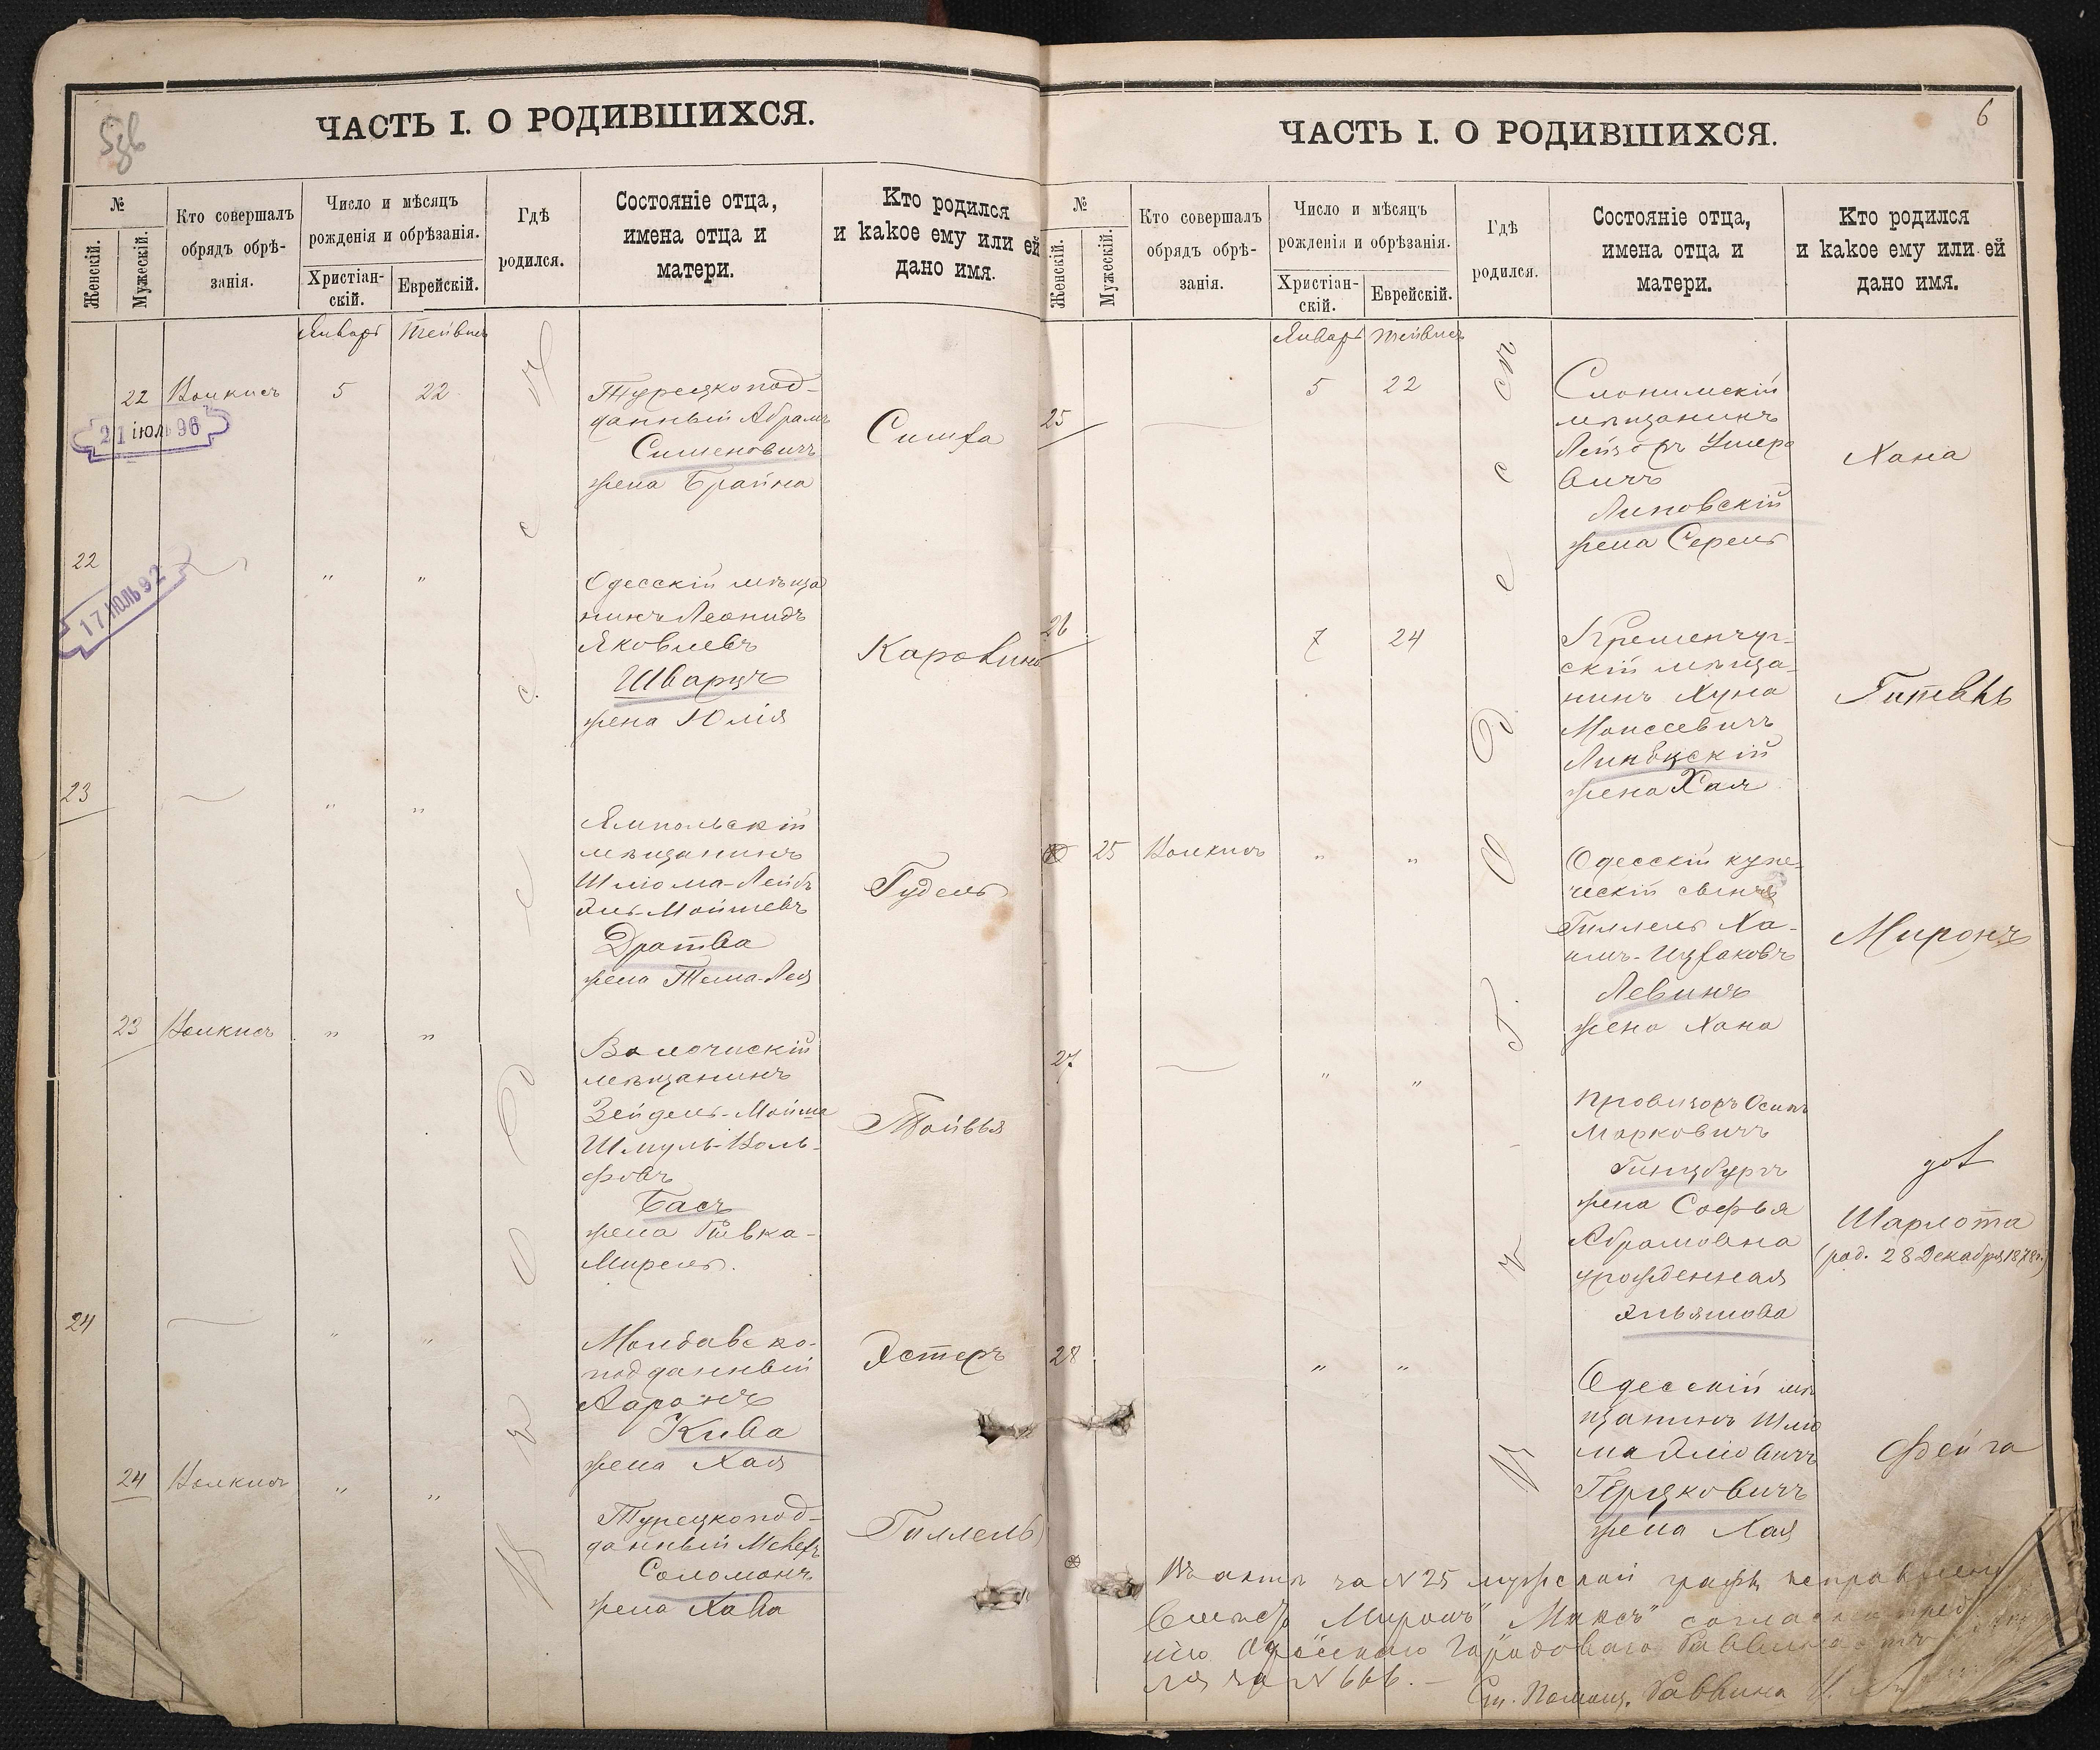 5зв
ЧАСТЬ I. О РОДИВШИХСЯ.
№
Женскій.
Мужескій.
Кто совершалъ
обрядъ обрѣ-
занія.
Число и мѣсяцъ
рожденія и обрѣзанія.
Христіан-
скій.
Еврейскій.
Гдѣ
родился.
Состояніе отца,
имена отца и
матери.
Кто родился
и какое ему или ей
дано имя.
Январь Тейвисъ
22 5 22
Турецкопод-
данный Абрамъ
Сименовичъ
жена Брайна
Симха
21 іюль 96
22 " "
17 ІЮЛЬ 92
Одесскій мѣща
нинъ Леонидъ
Яковлевъ
Шварцъ
жена Юлія
Каролина
23 " "
Ямпольскій
мѣщанинъ
Шлюма-Лейбъ
Мойшевъ
Дратва
жена Тема-Лея
Гудель
23 " "
Волочискій
мѣщанинъ
Зейдель-Мойше
Шмуль-Воль-
фовъ
Басъ
жена Ривка-
Мирель.
Тойвья
24 " "
Молдавско-
подданный
Ааронъ
Кива
жена Хая
Эстеръ
24 " "
Турецкопод-
данный
Соломонъ
жена Хава
Гиллель
6
ЧАСТЬ I. О РОДИВШИХСЯ.
№
Женскій.
Мужескій.
Кто совершалъ
обрядъ обрѣ-
занія.
Число и мѣсяцъ
рожденія и обрѣзанія.
Христіан-
скій.
Еврейскій.
Гдѣ
родился.
Состояніе отца,
имена отца и
матери.
Кто родился
и какое ему или ей
дано имя.
Январь Тейвисъ
25 5 22
Слонимскій
мѣщанинъ
Лейзоръ Умеро
вичъ
Липовскій
жена Серель
Хана
26 7 24
Кременчуг-
скій мѣща-
нинъ Хуна
Моисеевичъ
жена Хая
Гитель
25 " "
Одесскій купе-
ческій сынъ
Гиллель Ха-
имъ-Ицхаковъ
Левинъ
жена Хана
Миронъ
27 " "
Провизоръ Осипъ
Марковичъ
Гинцбургъ
жена Софья
Абрамовна
урожденная
Эльяшова
дов
Шарлота
(род. 28 Декабря 1878г.)
28 " "
Одесскій мѣ
щанинъ Шлио
ма Эліовичъ
Герцковичъ
жена Хая
Фейга
Въ актѣ за № 25 мужской графы исправлено
вмѣсто „Миронъ" „Максъ" согласно
Одесскаго Городоваго Раввина
за № 666. —
Ст. Помощ. Раввина